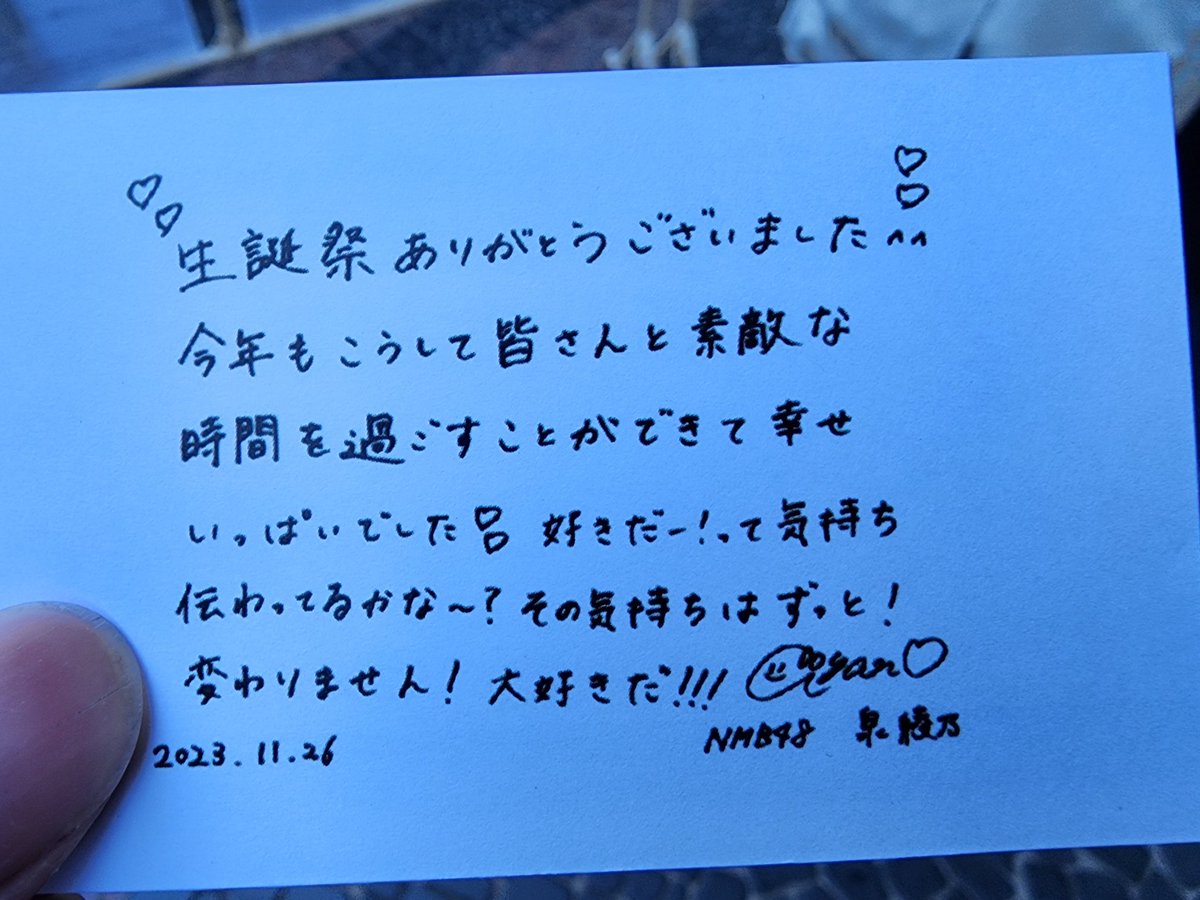 生誕祭ありがとうございました^^
今年もこうして皆さんと素敵な
時間を過ごすことができて幸せ
いっぱいでした♡♡ 好きだー!って気持ち
伝わってるかな〜?その気持ちはずっと!
変わりません!大好きだ!!!
2023.11.26
NMB48 泉綾乃